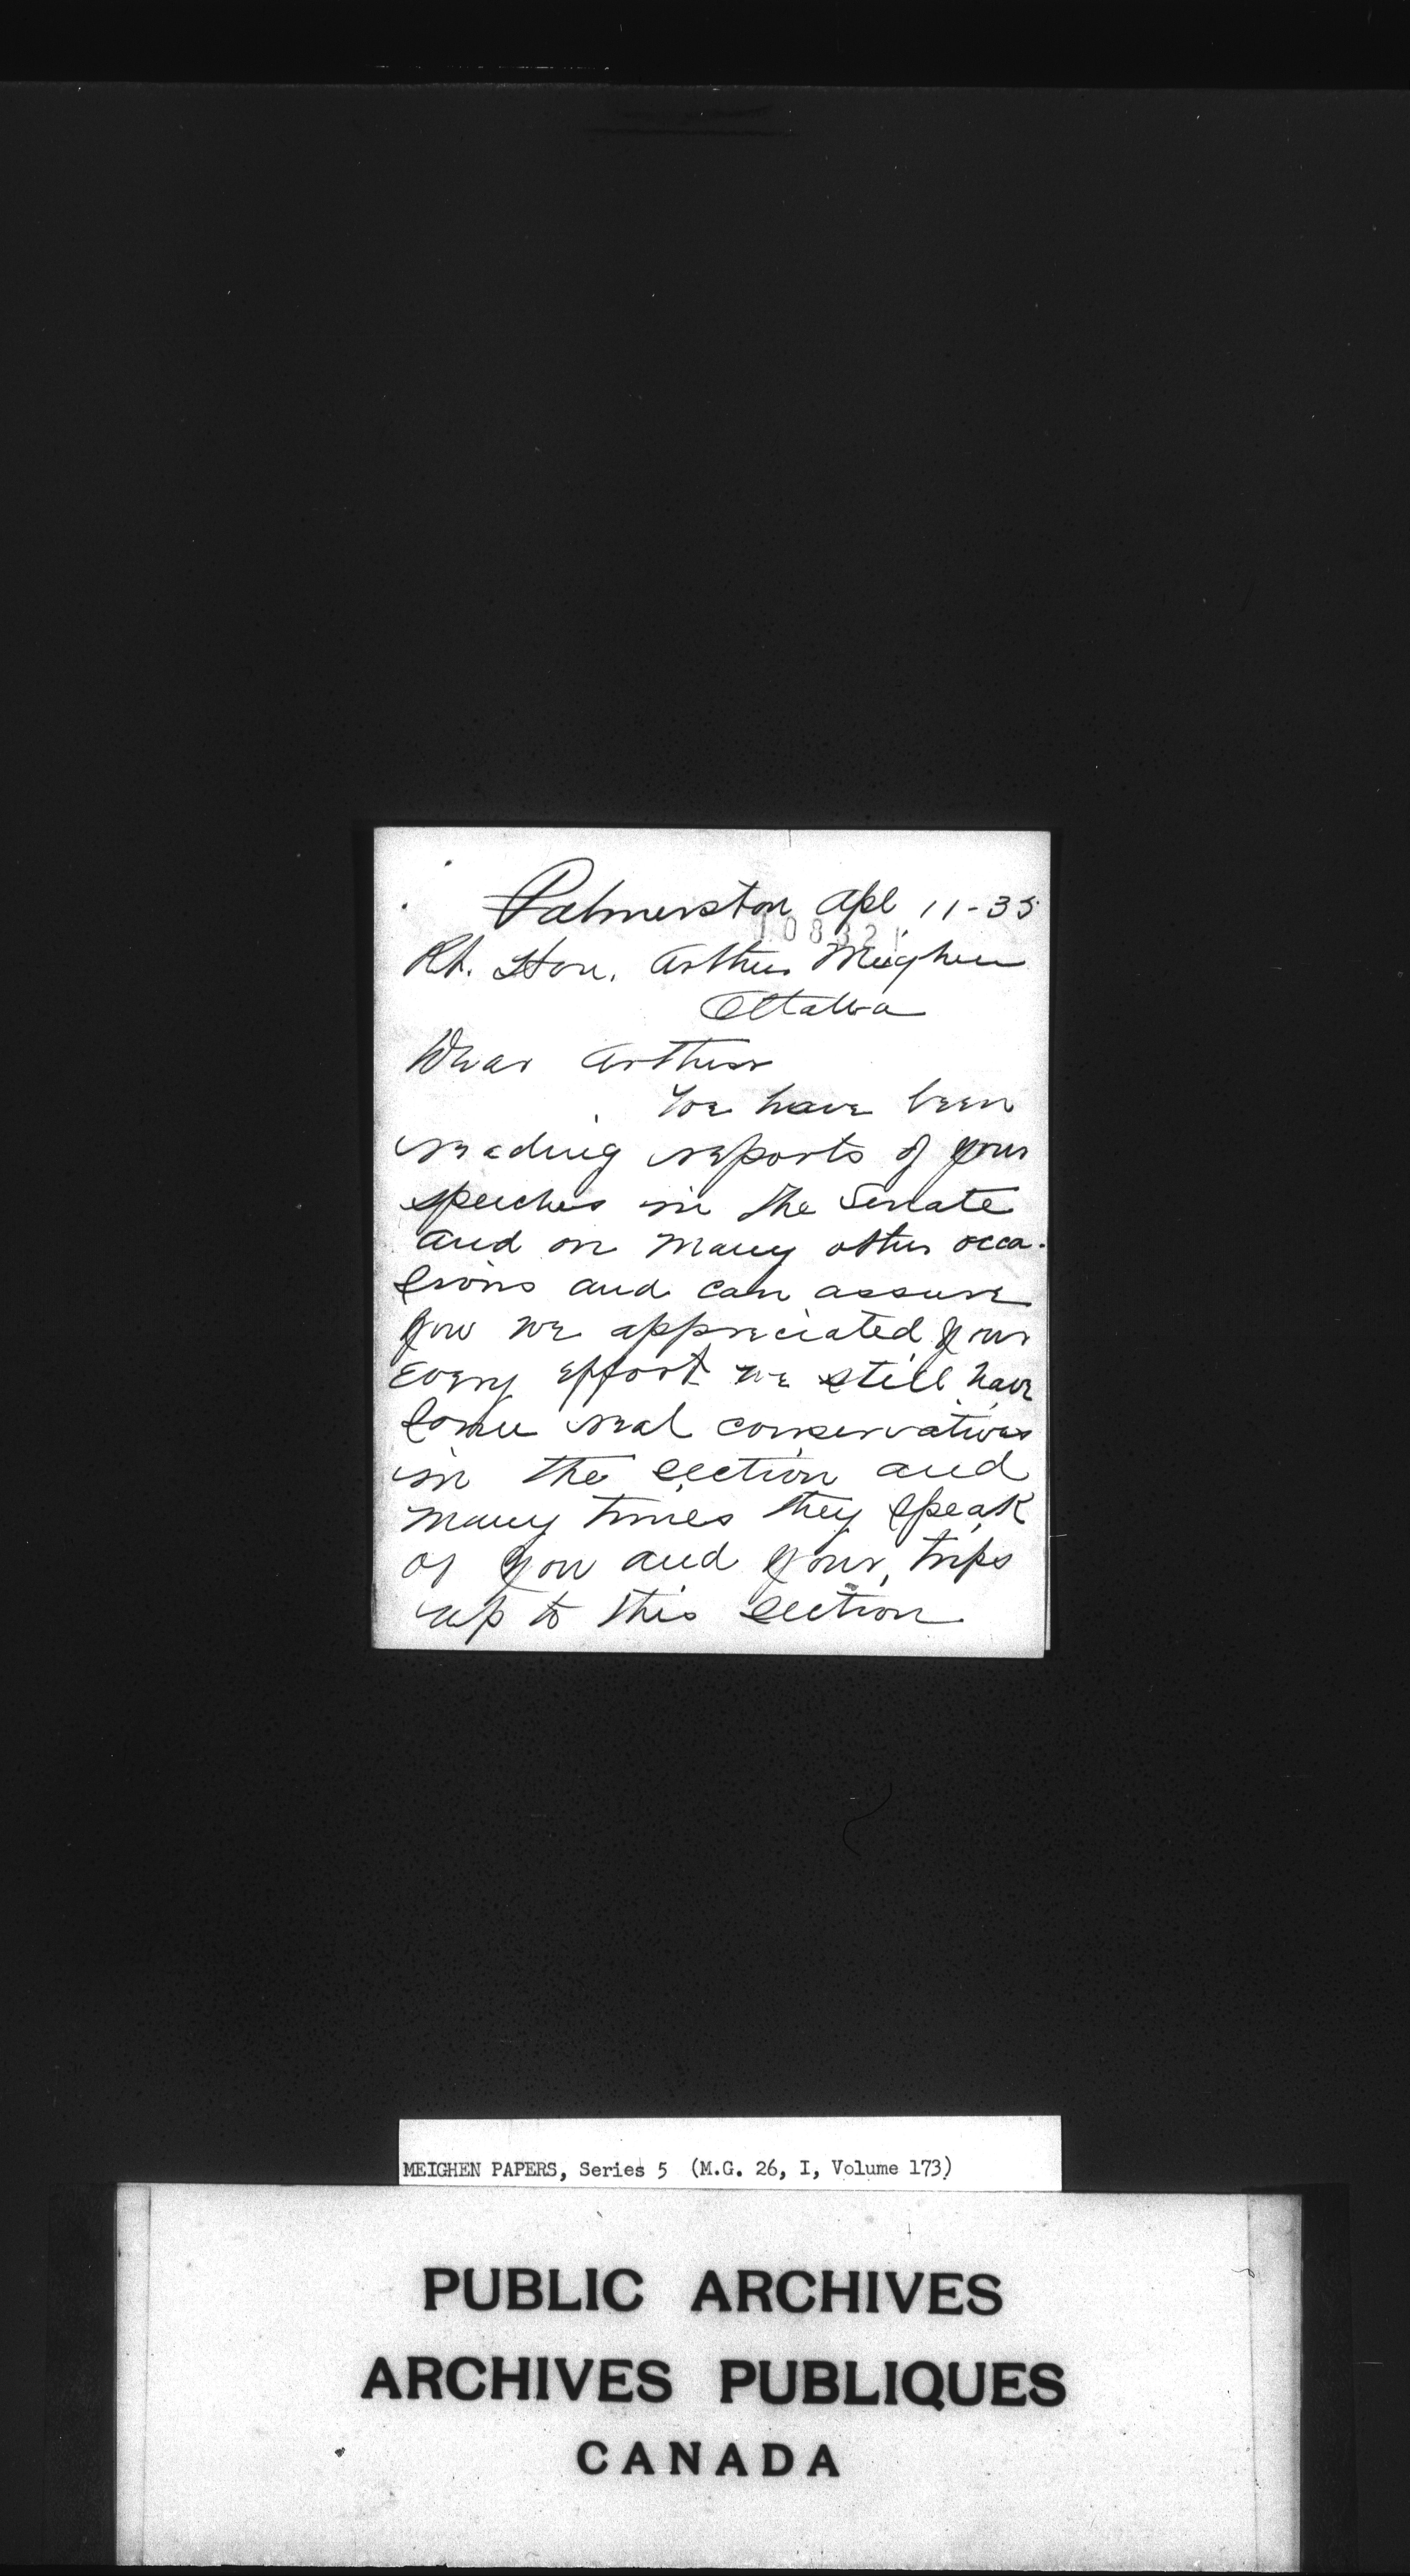 Palmerston Apl 11-35
108321
Rt. Hon. Arthur Meighen
Ottawa
Dear Arthur
We have been
reading reports of your
speeches in the Senate
and on many other occa-
sions and can assure
you we appreciated your
every effort we still have
some real conservatives
in the section and
many times they speak
of you and your trips
up to this section
MEIGHEN PAPERS, Series 5 (M.G. 26, I, Volume 173)
PUBLIC ARCHIVES
ARCHIVES PUBLIQUES
CANADA